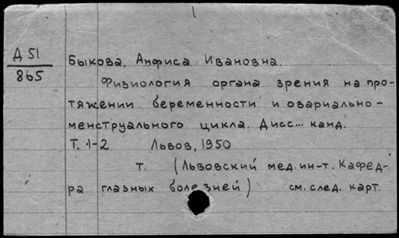 Д 51
865
Быкова, Анфиса Ивановна.
Физиология органа зрения на про-
тяжении беременности и овариально-
менструального цикла. Дисс... канд.
Т. 1-2 Львов, 1950
т. (Львовский мед. ин-т. Кафед-
ра глазных болезней) см. след. карт.